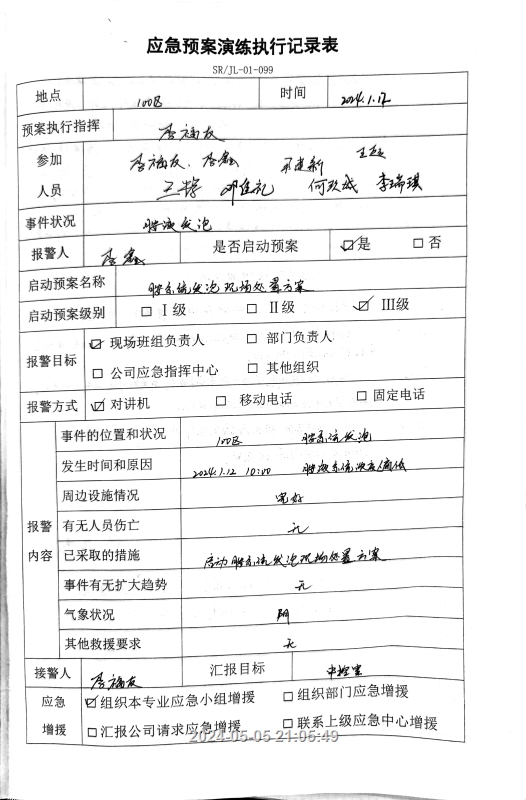 应急预案演练执行记录表
SR/JL-01-099
地点 100区 时间 2024.1.12
预案执行指挥 李福友
参加人员 李福友、李鑫 王超
何玖斌 李瑞琪
事件状况 胺液发泡
报警人 李鑫 是否启动预案 ☑是 □否
启动预案名称 胺系统发泡现场处置方案
启动预案级别 □ Ⅰ级 □ Ⅱ级 ☑ Ⅲ级
报警目标 ☑ 现场班组负责人 □ 部门负责人
□ 公司应急指挥中心 □ 其他组织
报警方式 ☑ 对讲机 □ 移动电话 □ 固定电话
报警内容
事件的位置和状况 100区 胺系统发泡
发生时间和原因 2024.1.12 10:00 胺液系统
周边设施情况 完好
有无人员伤亡 无
已采取的措施 启动胺系统发泡现场处置方案
事件有无扩大趋势 无
气象状况 阴
其他救援要求 无
接警人 李福友 汇报目标 中控室
应急增援 ☑组织本专业应急小组增援 □组织部门应急增援
□汇报公司请求应急增援 □联系上级应急中心增援
2024-05-05 21:05:49